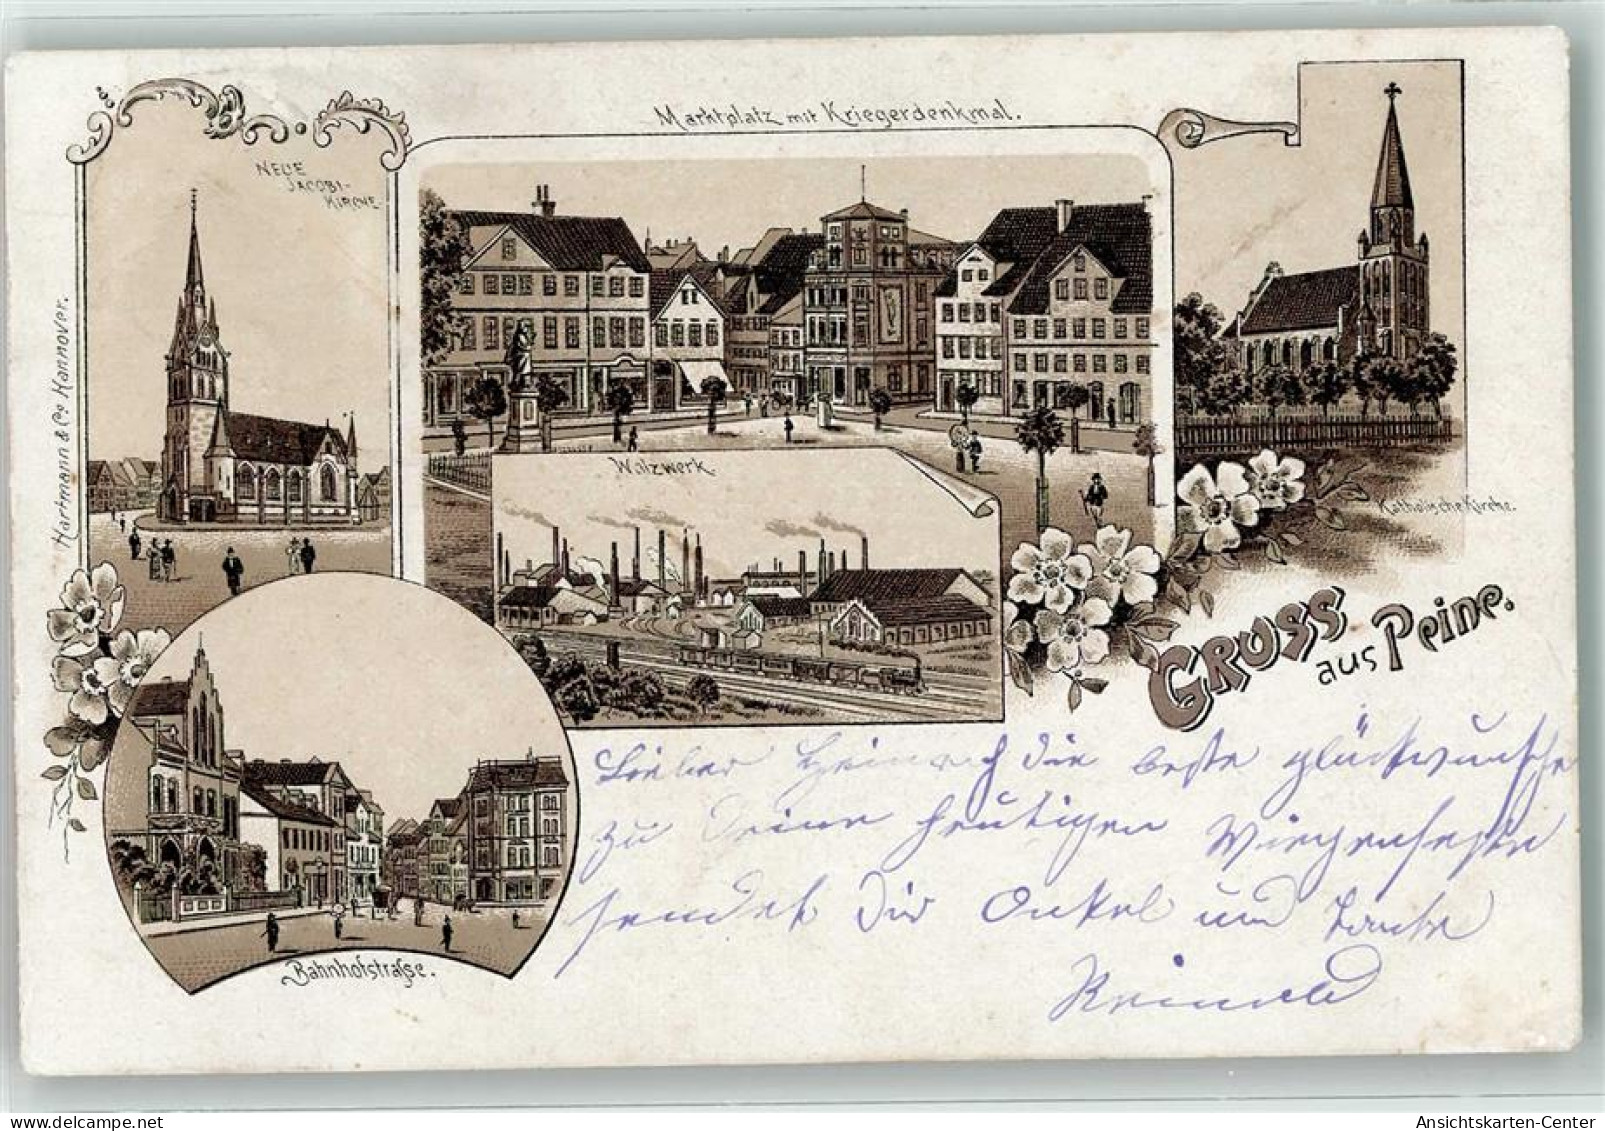 Marktplatz mit Kriegerdenkmal.
NEUE
JACOBI-
KIRCHE.
Hartmann & Co Hannover.
Walzwerk.
Katholische Kirche.
GRUSS
aus Peine.
Bahnhofstraße.
Lieber Heinrich die beste glückwünsche
zu Deine heutigen Wiegenfeste
sendet Dir Onkel und Tante
Ansichtskarten-Center